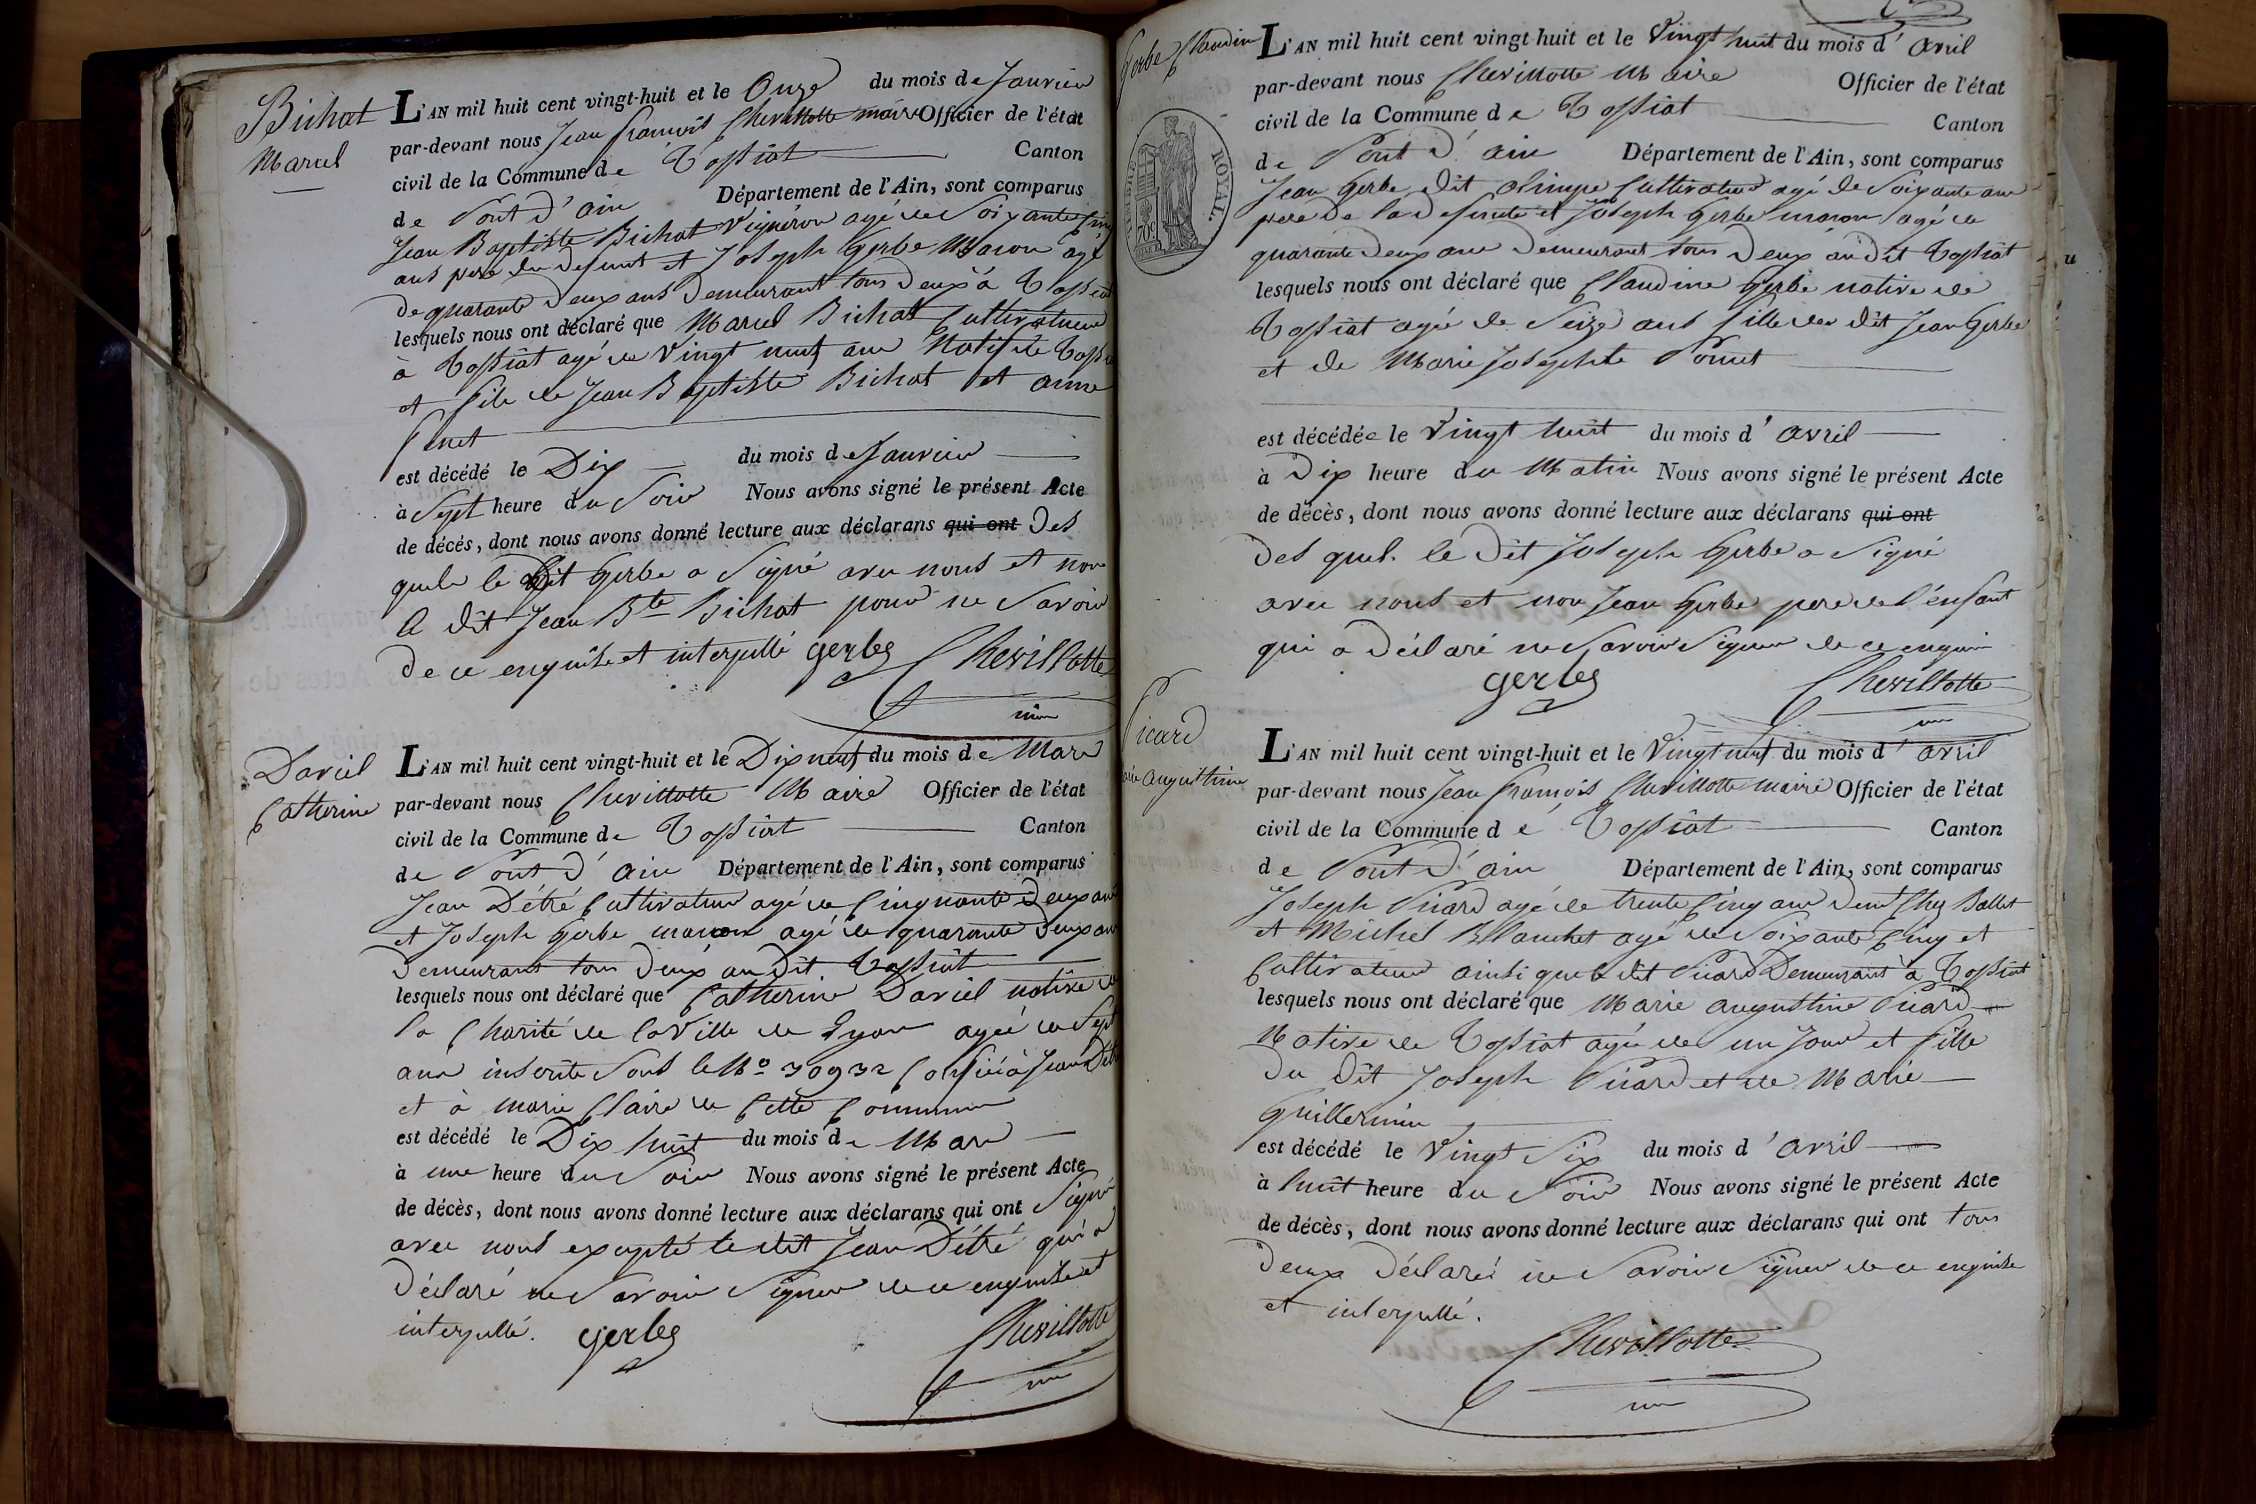 Bichat
Marcel
L'AN mil huit cent vingt-huit et le Onze du mois de Janvier
par-devant nous Jean françois Chevillotte maire Officier de l'état
civil de la Commune de Tossiat Canton
de Pont d'ain Département de l'Ain, sont comparus
Jean Baptiste Bichat Vigneron agé de Soixante Cinq
ans pere du defunt et Joseph Gerbe Macon agé
de quarante deux ans demeurant tous deux à Tossiat
lesquels nous ont déclaré que Marcel Bichat Cultivateur
à Tossiat agé de vingt neuf ans Natif de Tossiat
et fils de Jean Baptiste Bichat et anne
est décédé le Dix du mois de Janvier
à Sept heure du Soir Nous avons signé le présent Acte
de décés, dont nous avons donné lecture aux déclarans qui ont Des
quels le dit Gerbe a Signé avec nous et non
le dit Jean Bte Bichat pour ne Savoir
de ce enquis et interpellé gerbe Chevillotte
Daviel
Catherine
L'AN mil huit cent vingt-huit et le Dix neuf du mois de Mars
par-devant nous Chevillotte Maire Officier de l'état
civil de la Commune de Tossiat Canton
de Pont d'ain Département de l'Ain, sont comparus
Jean Détré Cultivateur agé de Cinquante deux ans
et Joseph Gerbe macon agé de quarante deux ans
Demeurant tous deux au dit Tossiat
lesquels nous ont déclaré que Catherine Daviel native de
la Charité de la Ville de Lyon agée de Sept
ans inscrite Sous le No 30932 Confiée à Jean Détré
et à marie Claire de Cette Commune
est décédé le Dix huit du mois de Mars
à une heure du Soir Nous avons signé le présent Acte
de décès, dont nous avons donné lecture aux déclarans qui ont Signé
avec nous excepté le dit Jean Détré qui a
déclaré ne Savoir Signer de ce enquis et
interpellé. gerbe Chevillotte
Gerbe Claudine
TIMBRE ROYAL
70c
L'AN mil huit cent vingt-huit et le Vingt huit du mois d'avril
par-devant nous Chevillotte Maire Officier de l'état
civil de la Commune de Tossiat Canton
de Pont d'ain Département de l'Ain, sont comparus
Jean Gerbe dit olimpe Cultivateur agé de Soixante ans
pere de la defunte et Joseph Gerbe macon agé de
quarante deux ans Demeurant tous deux au dit Tossiat
lesquels nous ont déclaré que Claudine Gerbe native de
Tossiat agée de Seize ans fille du dit Jean Gerbe
et de Marie Josephte
est décédée le Vingt huit du mois d'avril
à Dix heure du Matin Nous avons signé le présent Acte
de décès, dont nous avons donné lecture aux déclarans qui ont
des quels le dit Joseph Gerbe a Signé
avec nous et non Jean Gerbe pere de l'enfant
qui a déclaré ne Savoir Signer de ce enquis
gerbe Chevillotte
Picard
Marie augustine
L'AN mil huit cent vingt-huit et le Vingt neuf du mois d'avril
par-devant nous Jean françois Chevillotte maire Officier de l'état
civil de la Commune de Tossiat Canton
de Pont d'ain Département de l'Ain, sont comparus
Joseph Picard agé de trente Cinq ans Chez Ballet
et Michel Blanchet agé de Soixante Cinq et
Cultivateur ainsi que le dit Picard Demeurant à Tossiat
lesquels nous ont déclaré que Marie augustine Picard
Native de Tossiat agée de un Jour et fille
du dit Joseph Picard et de Marie
Guillermin
est décédé le Vingt Six du mois d'avril
à huit heure du Soir Nous avons signé le présent Acte
de décès, dont nous avons donné lecture aux déclarans qui ont tous
deux déclaré ne Savoir Signer de ce enquis
et interpellé.
Chevillotte